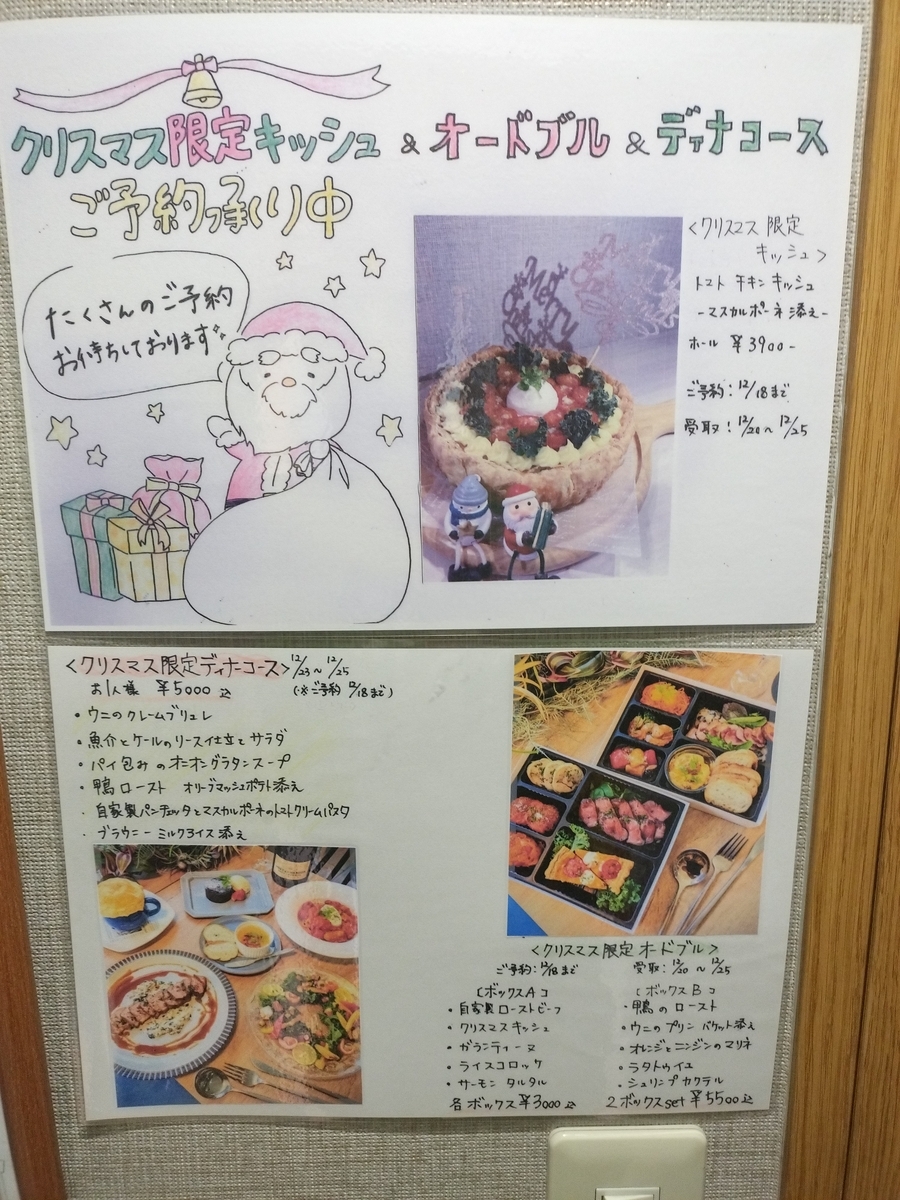 クリスマス限定キッシュ & オードブル & ディナコース
ご予約承り中
たくさんのご予約
お待ちしております
<クリスマス 限定
キッシュ>
トマト チキン キッシュ
-マスカルポーネ 添え-
ホール ¥3900-
ご予約:12/18まで
受取:12/20~12/25
<クリスマス限定ディナーコース>12/23~12/25
お1人様 ¥5000込 (※ご予約 12/18まで)
・ウニのクレームブリュレ
・魚介とケールのリース仕立て サラダ
・パイ包み のオニオングラタンスープ
・鴨ロースト オリーブマッシュポテト添え
・自家製パンチェッタとマスカルポーネのトマトクリームパスタ
・ブラウニー ミルクアイス添え
<クリスマス限定 オードブル>
ご予約:12/18まで 受取:12/20~12/25
[ボックスA]
・自家製ローストビーフ
・クリスマスキッシュ
・ガランティーヌ
・ライスコロッケ
・サーモン タルタル
各ボックス¥3000込
[ボックスB]
・鴨のロースト
・ウニのプリン バケット添え
・オレンジとニンジンのマリネ
・ラタトゥイユ
・シュリンプカクテル
2ボックスset ¥5500込